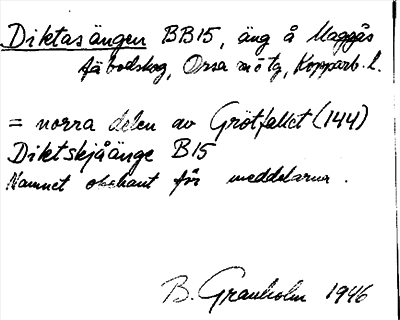 Diktasängen BB15, äng å Maggås
fäbodskog, Orsa sn o tg, Kopparb. l.
= norra delen av Grötfallet (144)
Diktskjåänge B15
Namnet obekant för meddelarna.
B. Granholm 1946